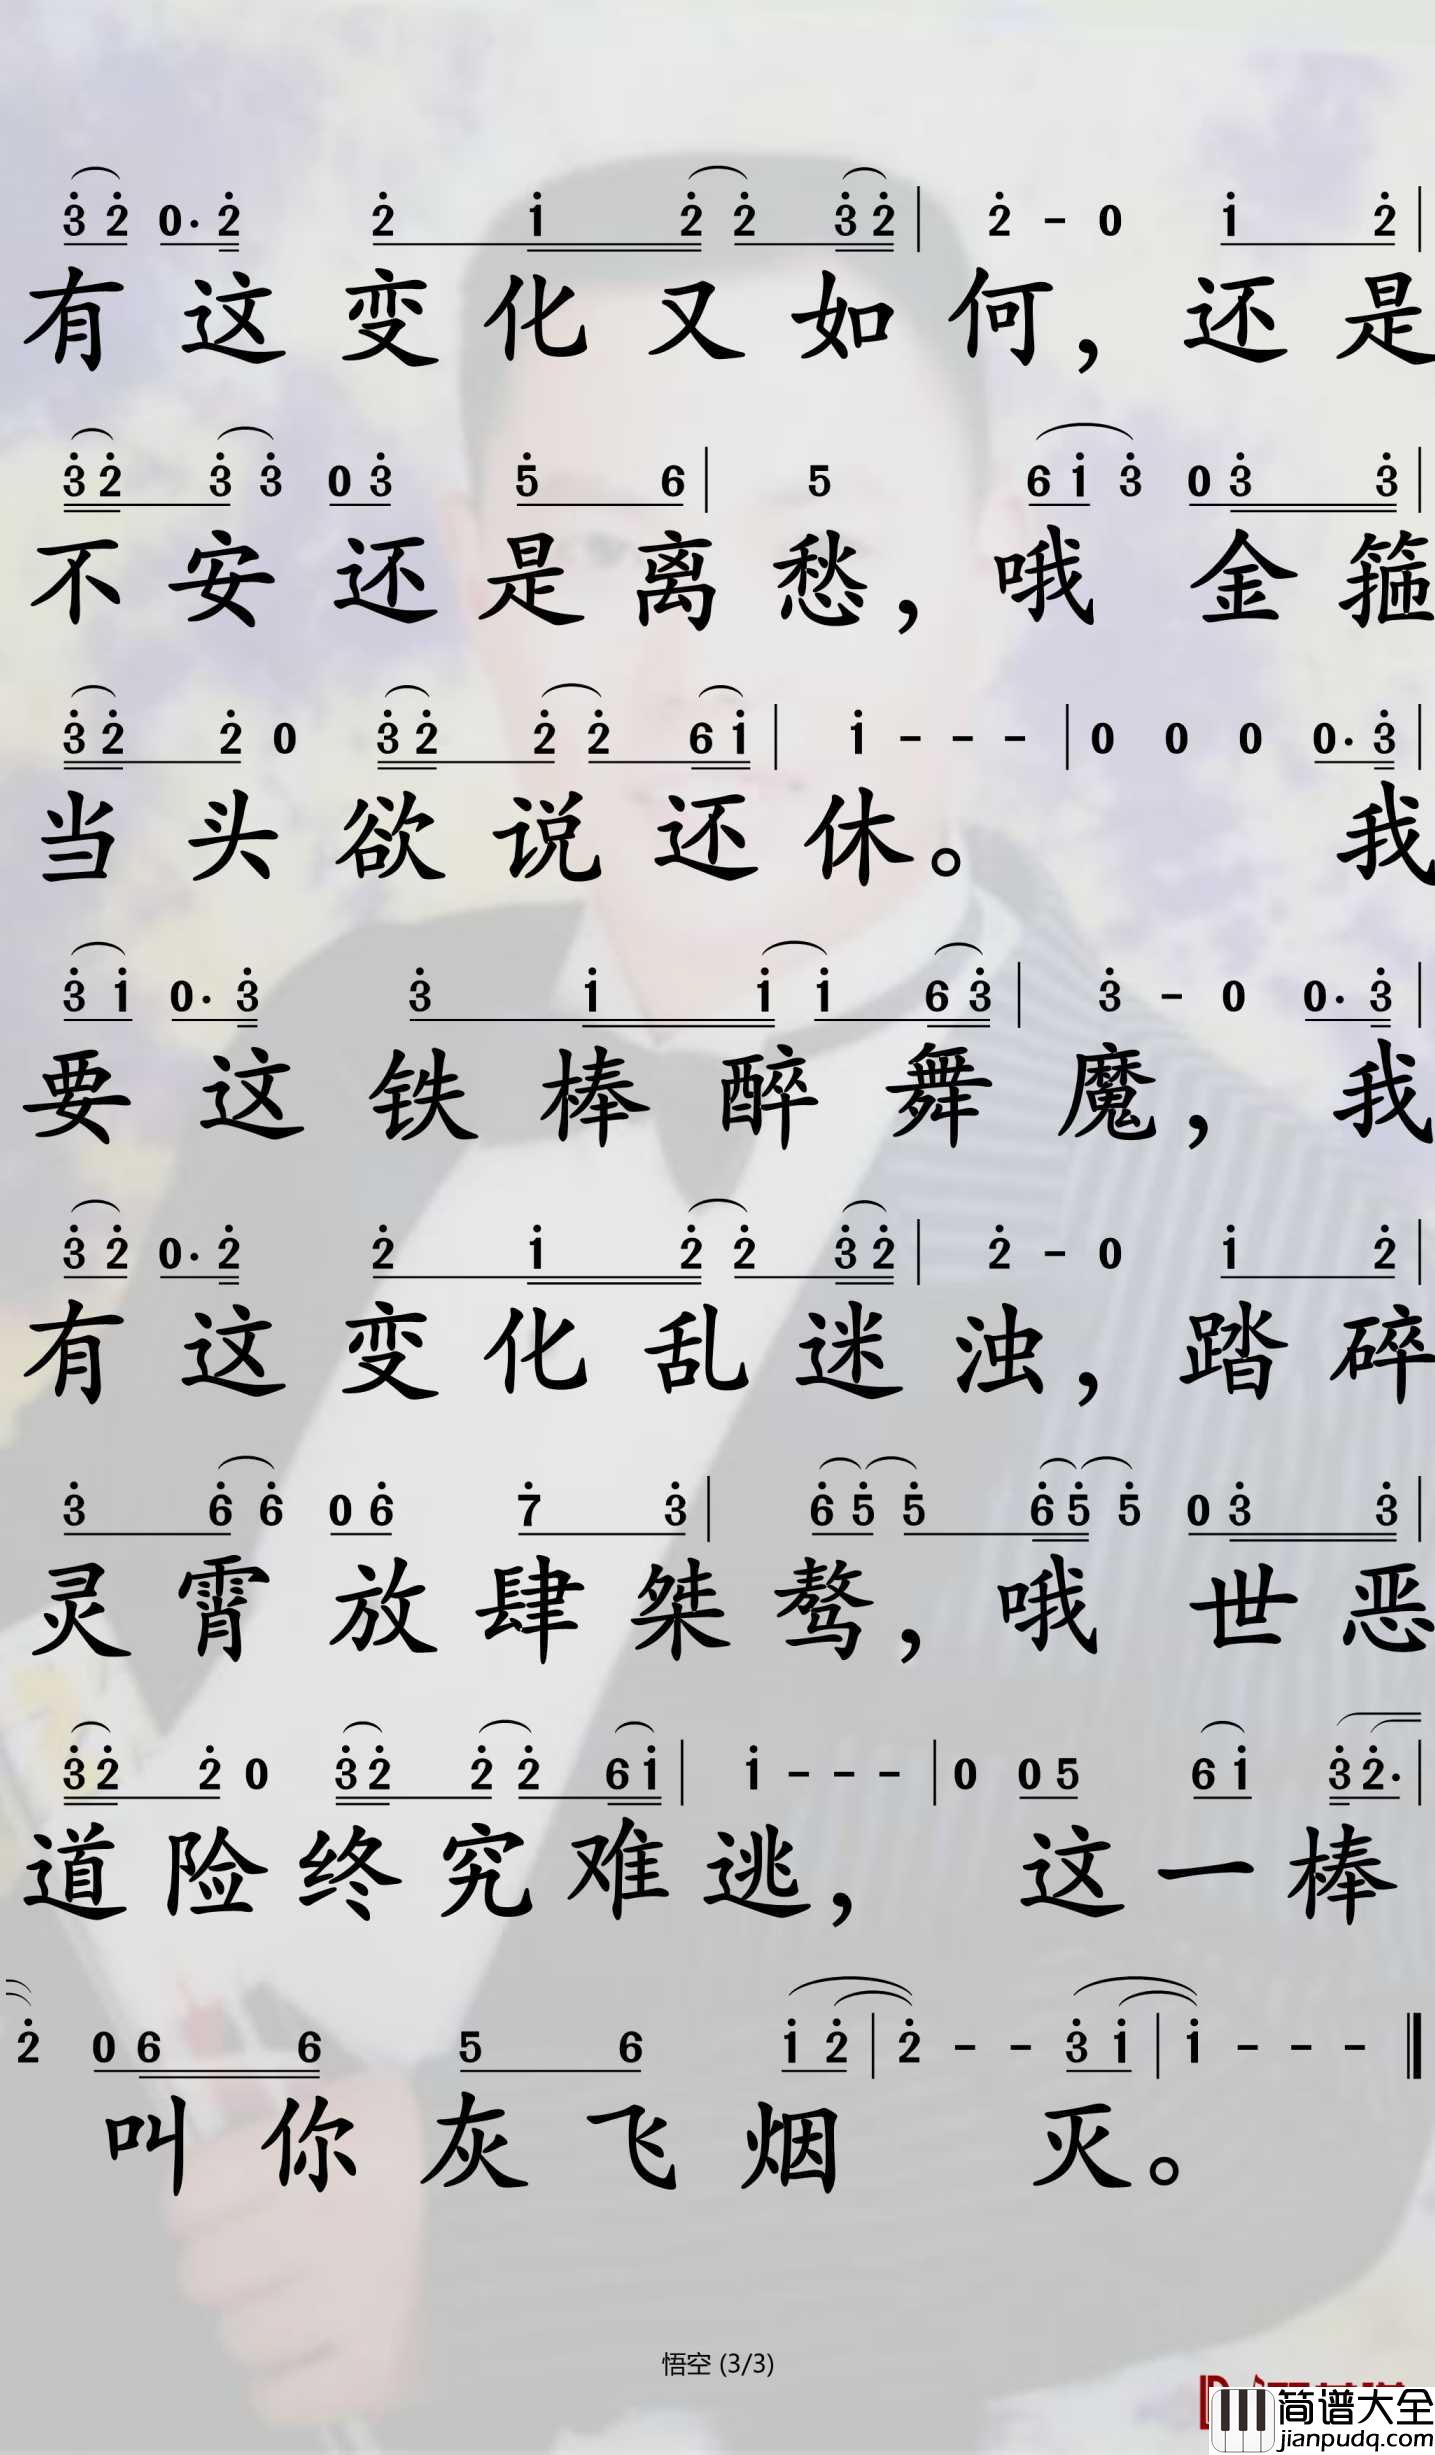 3 2 0· 2 2 1 2 2 3 2 | 2 - 0 1 2 |
有 这 变 化 又 如 何， 还 是
3 2 3 3 0 3 5 6 | 5 6 1 3 0 3 3 |
不 安 还 是 离 愁， 哦 金 箍
3 2 2 0 3 2 2 2 6 1 | 1 - - - | 0 0 0 0· 3 |
当 头 欲 说 还 休。 我
3 1 0· 3 3 1 1 1 6 3 | 3 - 0 0· 3 |
要 这 铁 棒 醉 舞 魔， 我
3 2 0· 2 2 1 2 2 3 2 | 2 - 0 1 2 |
有 这 变 化 乱 迷 浊， 踏 碎
3 6 6 0 6 7 3 | 6 5 5 6 5 5 0 3 3 |
灵 霄 放 肆 桀 骜， 哦 世 恶
3 2 2 0 3 2 2 2 6 1 | 1 - - - | 0 0 5 6 1 3 2· |
道 险 终 究 难 逃， 这 一 棒
2 0 6 6 5 6 1 2 | 2 - - 3 1 | 1 - - - ‖
叫 你 灰 飞 烟 灭。
悟空 (3/3)
简谱大全
jianpudq.com